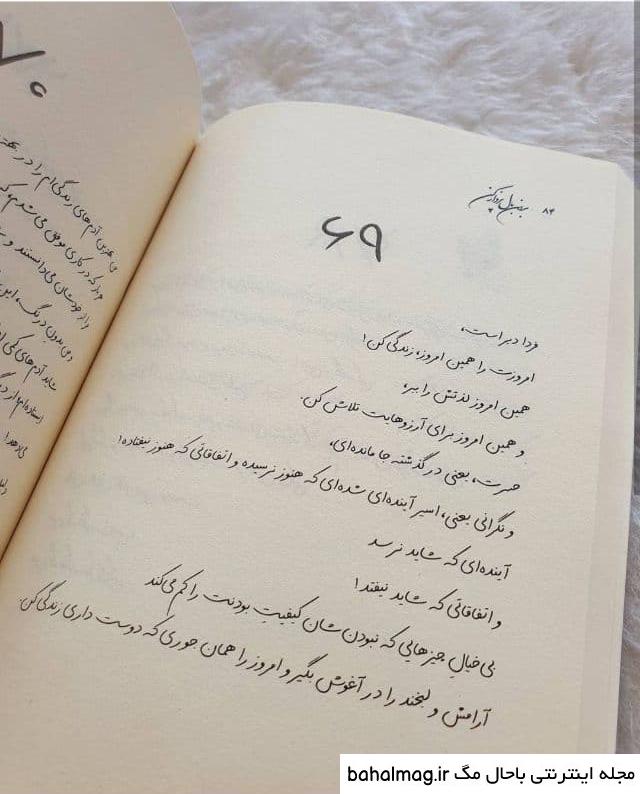 ۸۴
۶۹
فردا دیر است،
امروزت را همین امروز، زندگی کن!
همین امروز لذتش را ببر،
و همین امروز برای آرزوهایت تلاش کن.
حسرت، یعنی در گذشته جا مانده‌ای،
و نگرانی یعنی، اسیر آینده‌ای شده‌ای که هنوز نرسیده و اتفاقاتی که هنوز نیفتاده!
آینده‌ای که شاید نرسد
و اتفاقاتی که شاید نیفتد!
بی‌خیالِ چیزهایی که نبودن‌شان کیفیتِ بودنت را کم می‌کند
آرامش و لبخند را در آغوش بگیر و امروز را همان جوری که دوست داری زندگی کن.
زندگی‌ام را در
که در کاری موفق می‌شدم،
می‌دانستند و
شاید آدم‌های
مجله اینترنتی باحال مگ bahalmag.ir